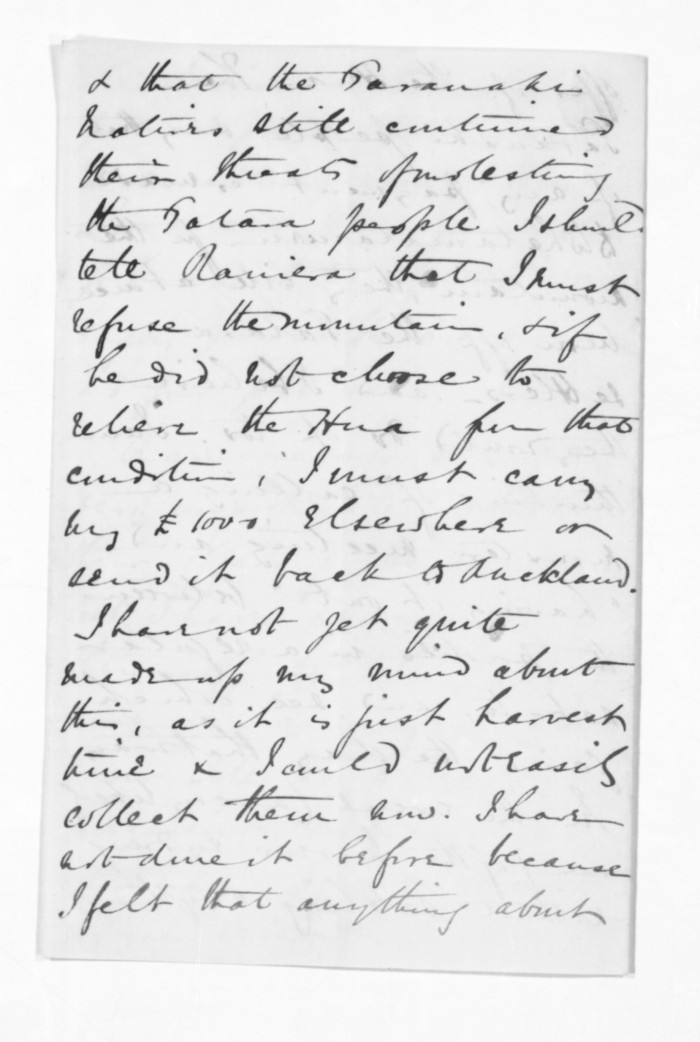 & that the Taranaki
Natives still continued
their threats of molesting
the Patara people I should
tell Raniera that I must
refuse the mountain, & if
he did not choose to
relieve the Hua from that
condition, I must carry
my £1000 elsewhere or
send it back to Auckland.
I have not yet quite
made up my mind about
this, as it is just harvest
time & I could not easily
collect them now. I have
not done it before because
I felt that anything about